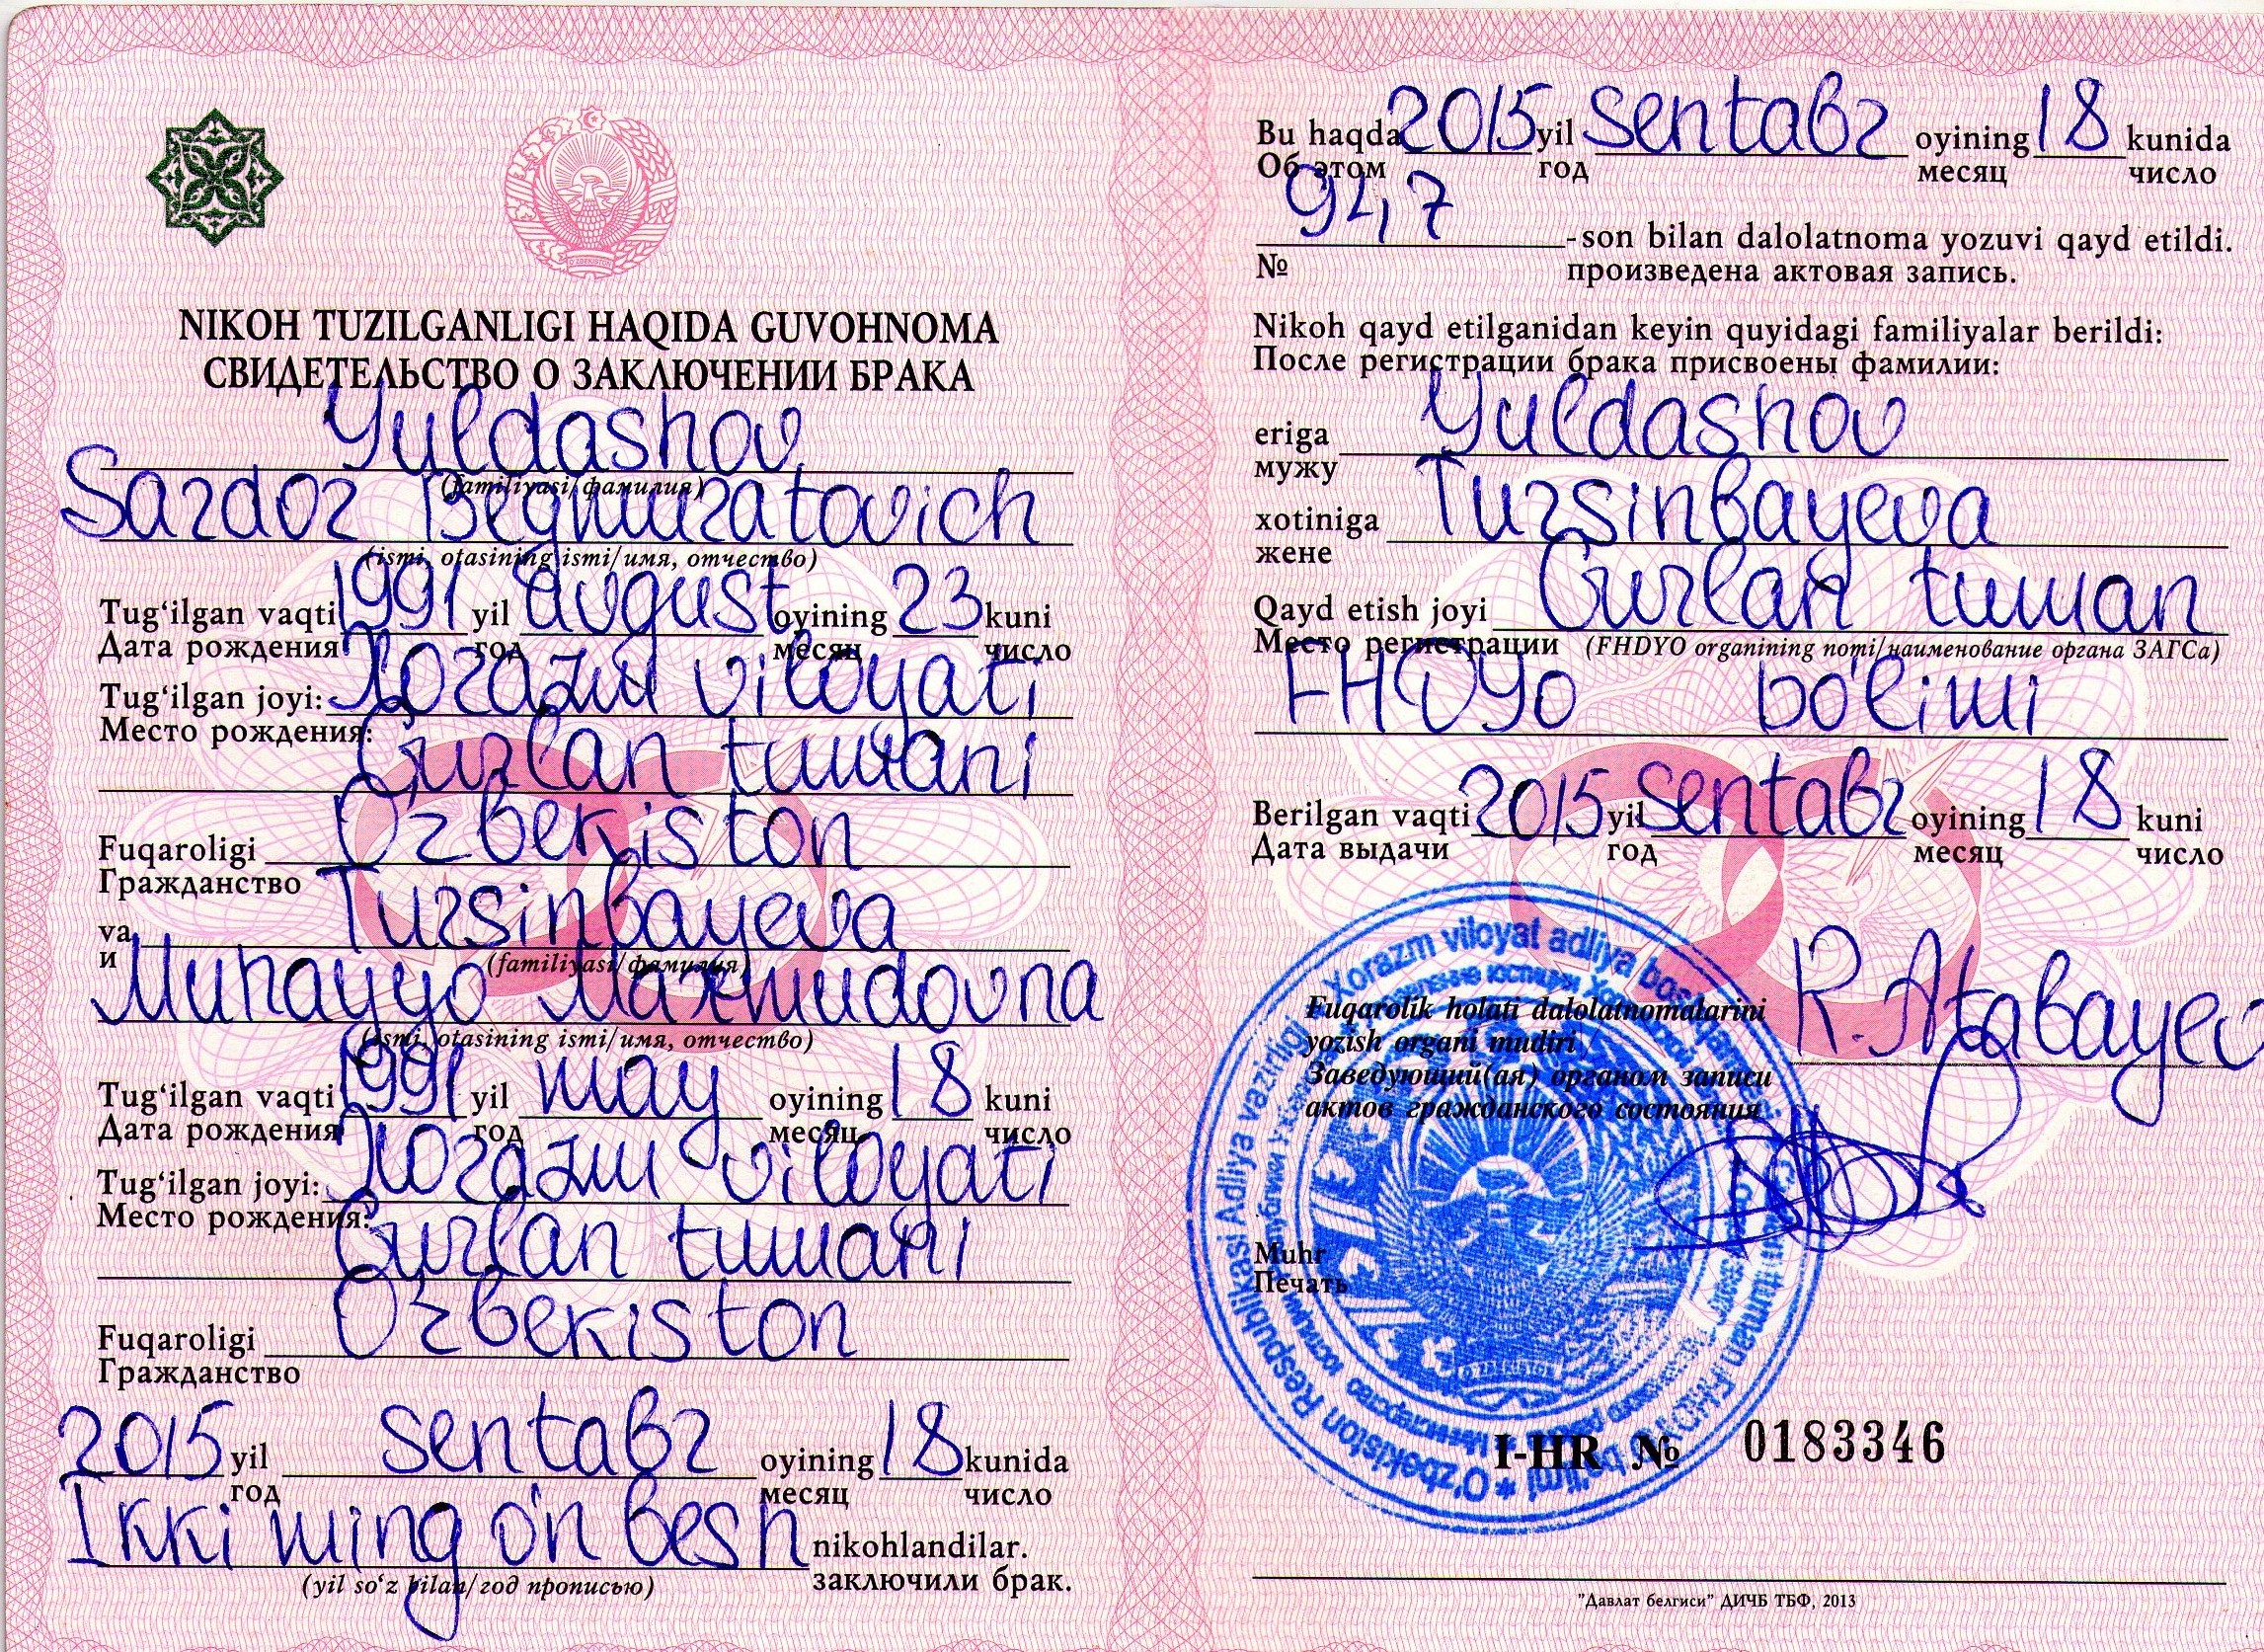 NIKOH TUZILGANLIGI HAQIDA GUVOHNOMA
СВИДЕТЕЛЬСТВО О ЗАКЛЮЧЕНИИ БРАКА
Yuldashov
(familiyasi/фамилия)
Sardor Begmuratovich
(ismi, otasining ismi/имя, отчество)
Tug‘ilgan vaqti 1991 yil avgust oyining 23 kuni
Дата рождения год месяц число
Tug‘ilgan joyi: Xorazm viloyati
Место рождения:
Gurlan tumani
Fuqaroligi O'zbekiston
Гражданство
va Tursinbayeva
и (familiyasi/фамилия)
Muhayyo Maxmudovna
(ismi, otasining ismi/имя, отчество)
Tug‘ilgan vaqti 1991 yil may oyining 18 kuni
Дата рождения год месяц число
Tug‘ilgan joyi: Xorazm viloyati
Место рождения:
Gurlan tumani
Fuqaroligi O'zbekiston
Гражданство
2015 yil sentabr oyining 18 kunida
год месяц число
Ikki ming o'n besh nikohlandilar.
(yil so‘z bilan/год прописью) заключили брак.
Bu haqda 2015 yil sentabr oyining 18 kunida
Об этом год месяц число
947 -son bilan dalolatnoma yozuvi qayd etildi.
№ произведена актовая запись.
Nikoh qayd etilganidan keyin quyidagi familiyalar berildi:
После регистрации брака присвоены фамилии:
eriga Yuldashov
мужу
xotiniga Tursinbayeva
жене
Qayd etish joyi Gurlan tuman
Место регистрации (FHDYO organining nomi/наименование органа ЗАГСа)
FHDYo bo'limi
Berilgan vaqti 2015 yil sentabr oyining 18 kuni
Дата выдачи год месяц число
Fuqarolik holati dalolatnomalarini
yozish organi mudiri R. Atabayev
Заведующий(ая) органом записи
актов гражданского состояния
Muhr
Печать
O'zbekiston Respublikasi Adliya vazirligi Xorazm viloyat adliya
O'ZBEKISTON
I-HR № 0183346
"Давлат белгиси" ДИЧБ ТБФ, 2013